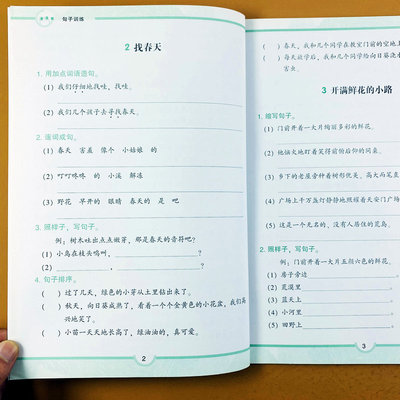 句子训练
2 找春天
1. 用加点词语造句。
(1) 我们仔细地找哇，找哇。
(2) 我们几个孩子去寻找春天。
2. 连词成句。
(1) 春天 害羞 像个 小姑娘 的
(2) 叮叮咚咚 的 小溪 解冻
(3) 野花 早开的 眼睛 春天的 是 吧
3. 照样子，写句子。
例：树木吐出点点嫩芽，那是春天的音符吧？
(1) 小鸟在枝头鸣叫，？
(2) ，？
4. 句子排序。
( ) 过了几天，绿色的小芽从土里钻出来了。
( ) 秋天，向日葵成熟了，看着一个个金黄色的小花盆，我们高
兴地笑了。
( ) 小苗一天天地长高了，绿油油的，真可爱。
2
( ) 春天，我和几个同学在教室门前的空地上
( ) 每天放学后，我和几个同学给向日葵浇水
害虫。
3 开满鲜花的小路
1. 缩写句子。
(1) 门前开着一大片绚丽多彩的鲜花。
(2) 他恼火地盯着笑得前俯后仰的同桌。
(3) 乡下的老屋旁种着树都优美、高大而笔直
(4) 广场上千万盏灯静静地照耀着天安门广场
(5) 这是一个无名的、没有人居住的荒岛。
2. 照样子，写句子。
例：门前开着一大片五颜六色的鲜花。
(1) 房子旁边
(2) 荒漠里
(3) 蓝天上
(4) 小河里
(5) 田野上
3